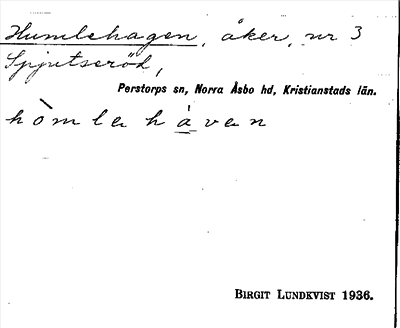 Humlehagen, åker, nr 3
Spjutseröd,
Perstorps sn, Norra Åsbo hd, Kristianstads län.
hòmlehå̀ven
BIRGIT LUNDKVIST 1936.